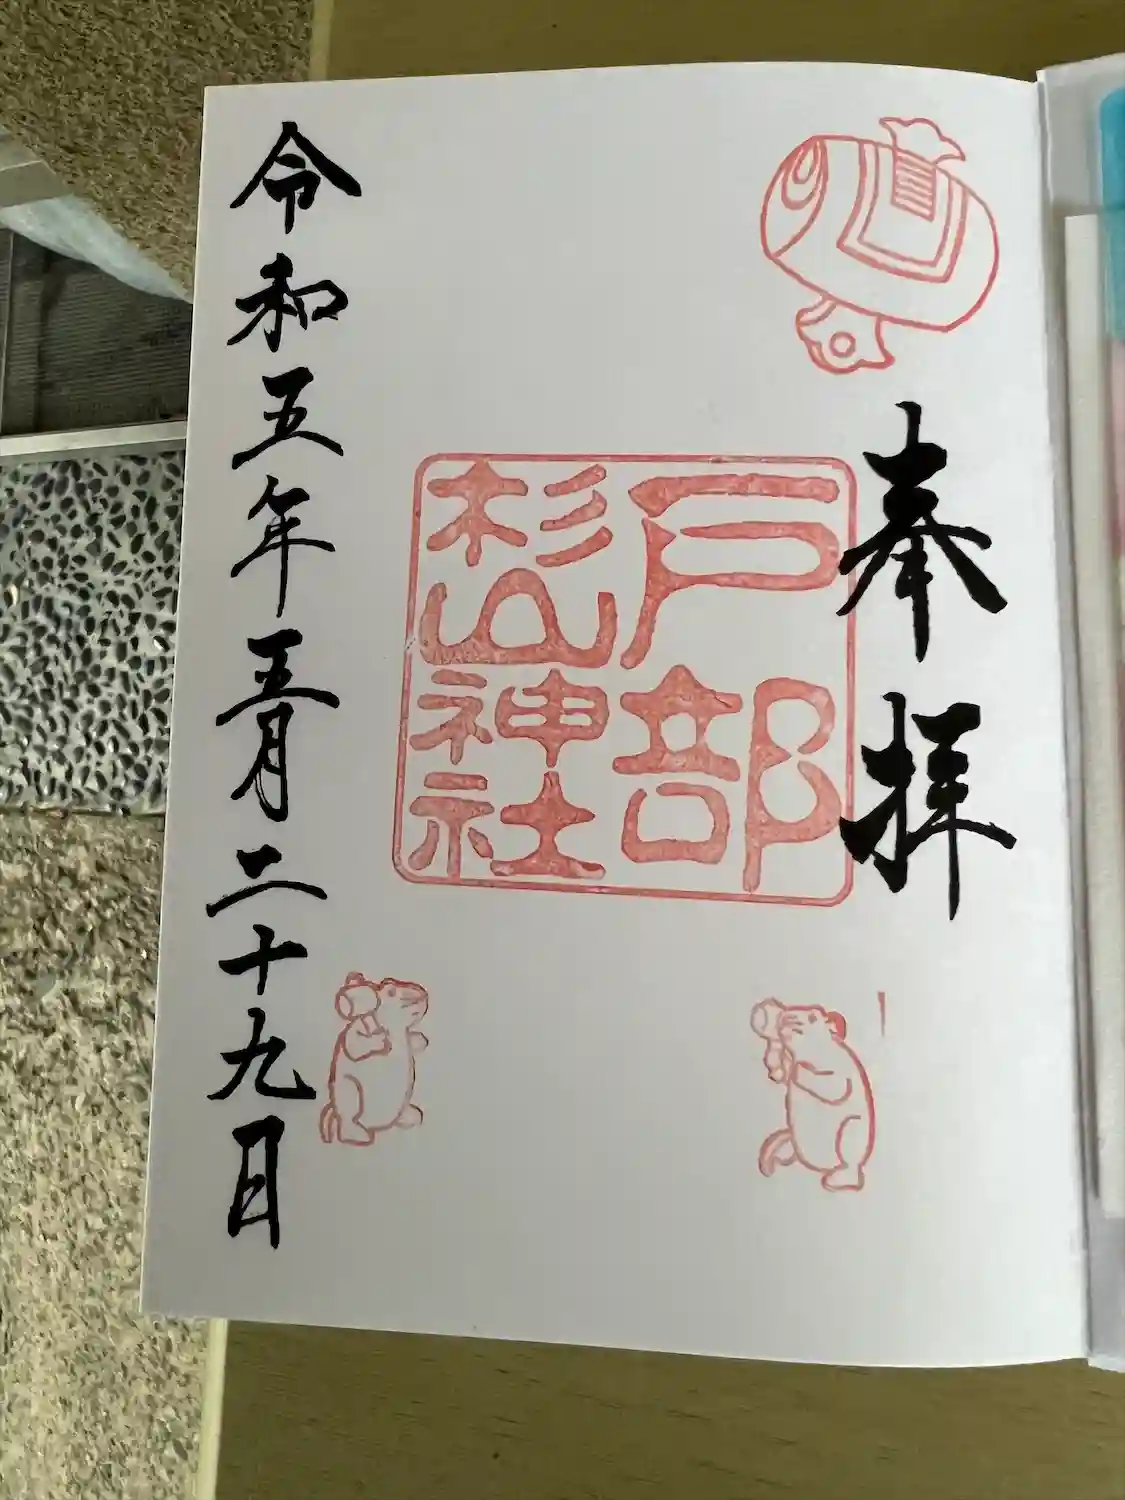 奉拝
戸部
杉山
神社
令和五年五月二十九日